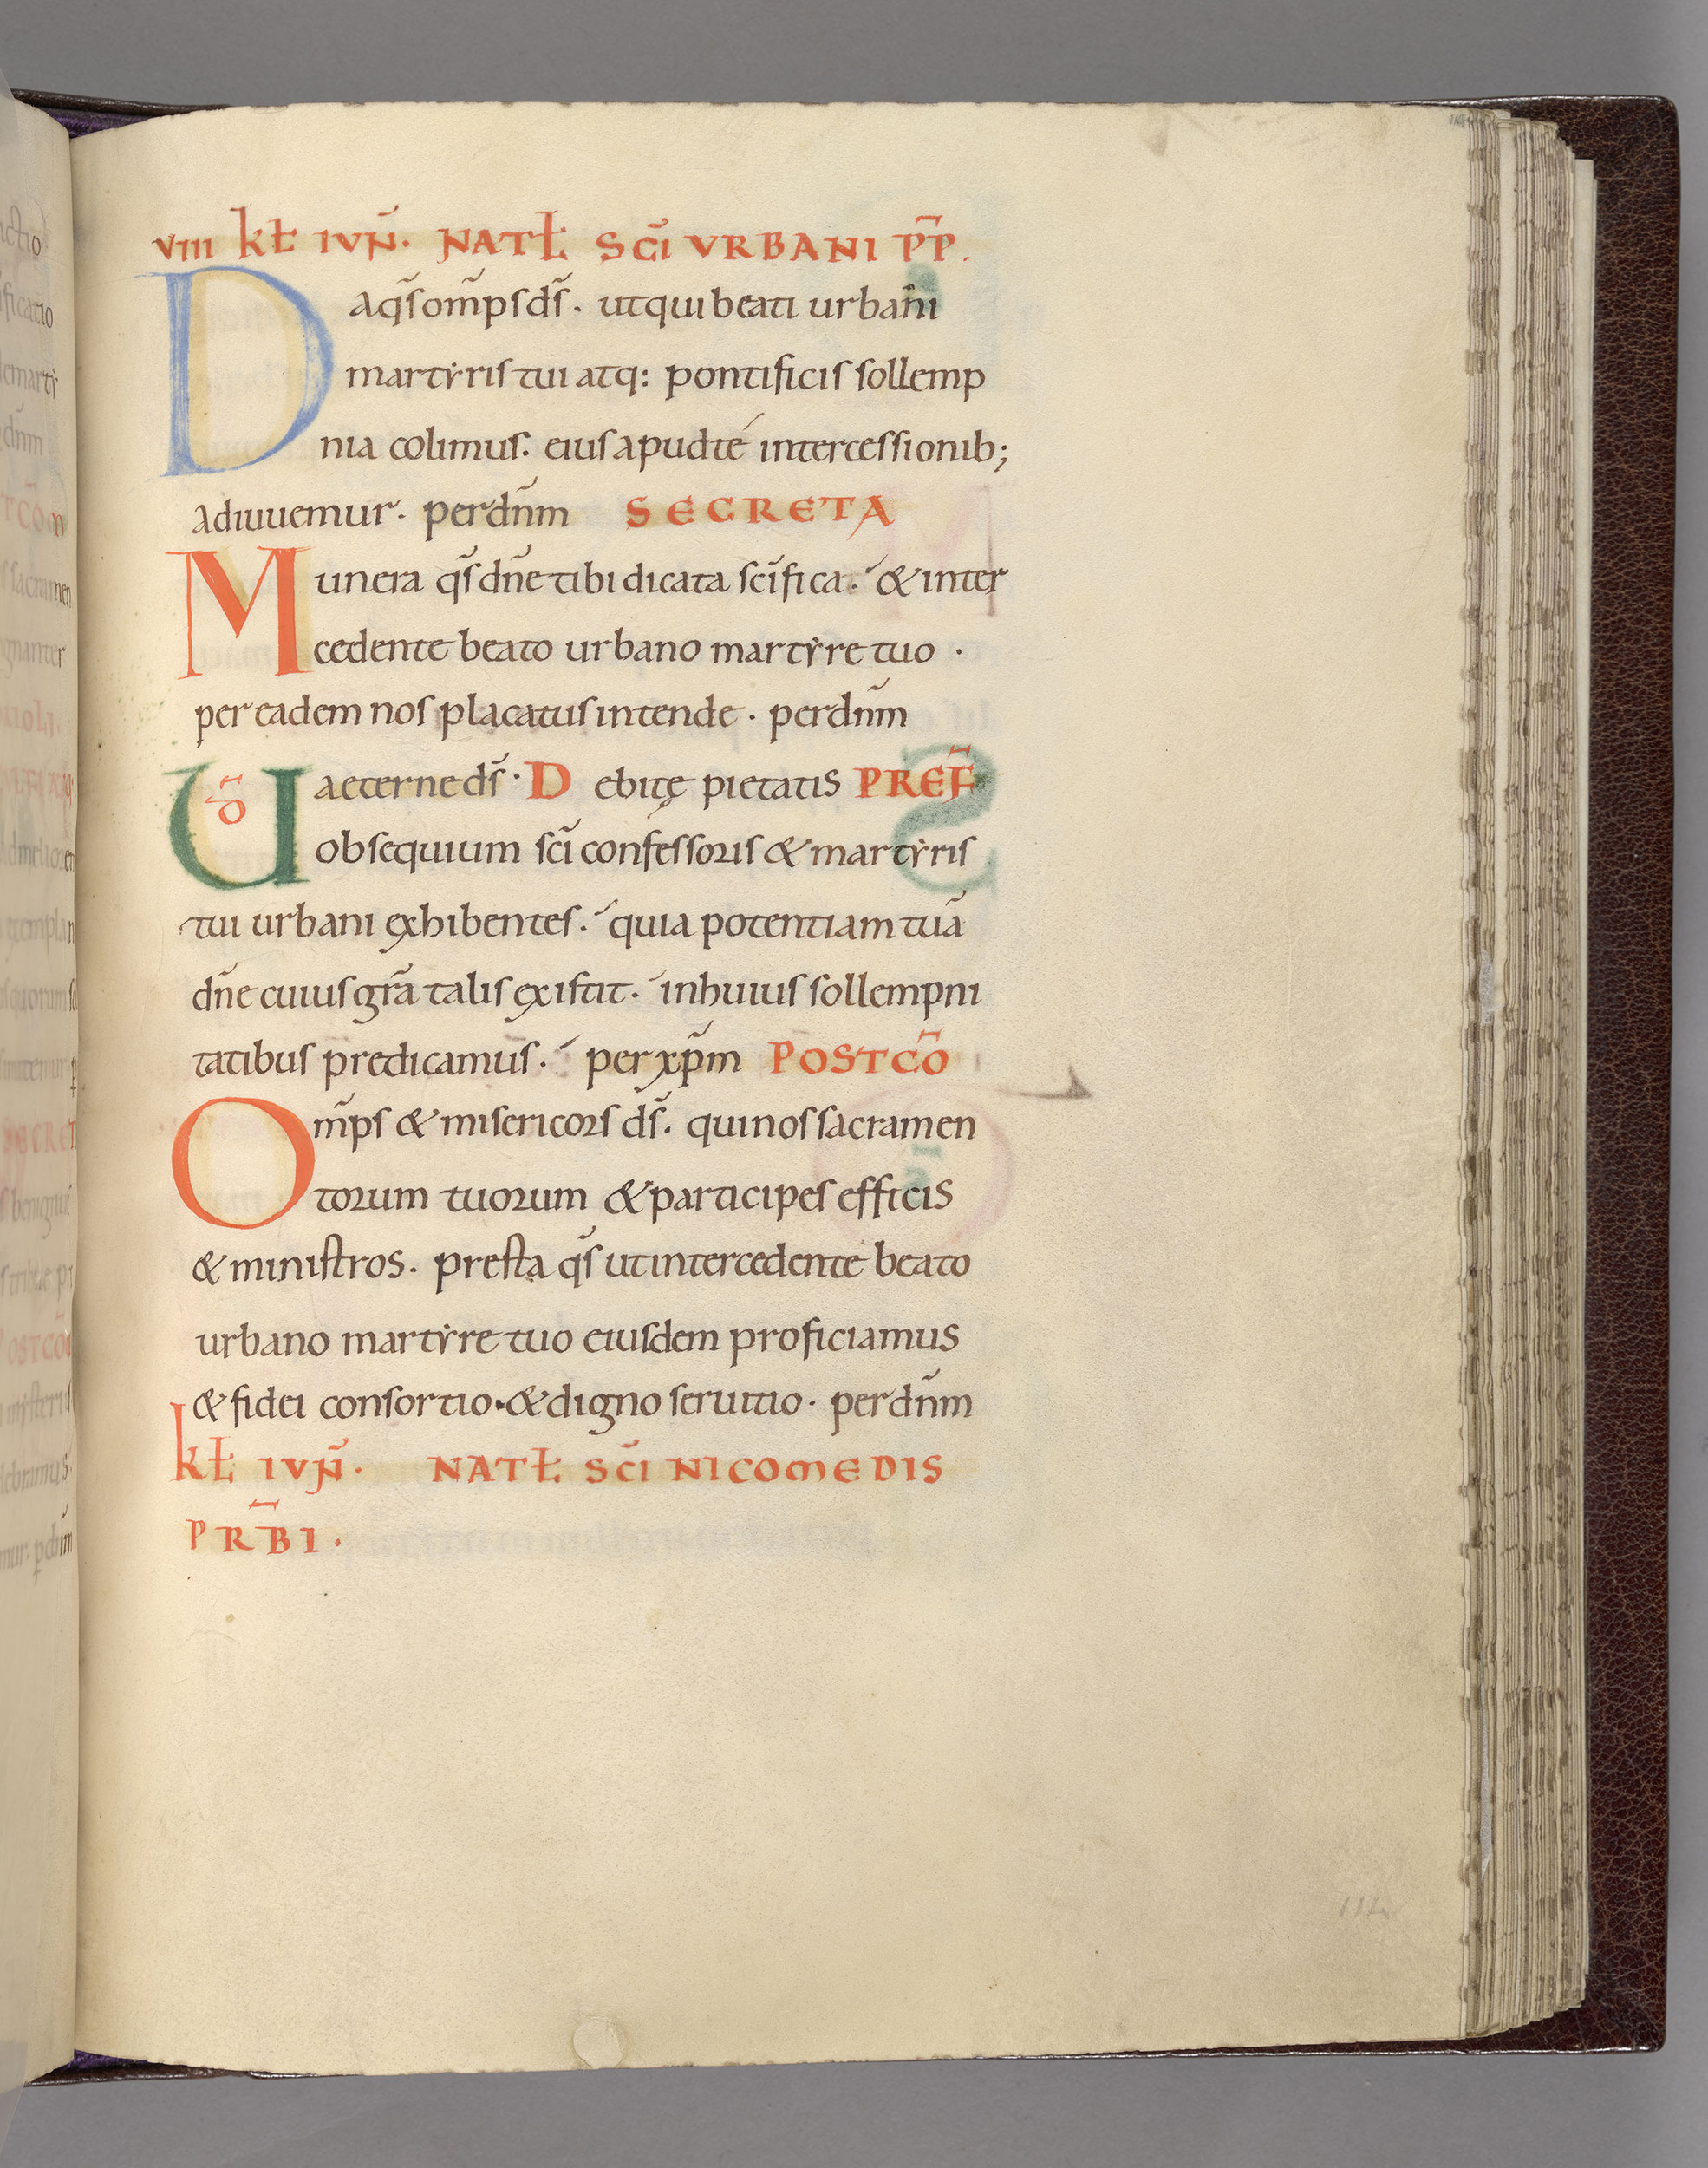 VIII KƗ IVÑ. NATƗ SC̃I VRBANI P̃P.
Da q̃s om̃ps d̃s. ut qui beati urbani
martẏris tui atq: pontificis sollemp
nia colimus. eius apud té intercessionib;
adiuuemur. per dñm SECRETA
Munera q̃s dñe tibi dicata sc̃ifica. & inter
cedente beato urbano martẏre tuo .
per eadem nos placatus intende . per dñm
U̅D aeterne d̃s . Debitę pietatis PREF̃
obsequium sc̃i confessoris & martẏris
tui urbani exhibentes. quia potentiam tuã
dñe cuius gr̃a talis existit. in huius sollempni
tatibus predicamus. per xp̃m POSTCÕ
Om̃ps & misericors d̃s. qui nos sacramen
torum tuorum & participes efficis
& ministros. presta q̃s ut intercedente beato
urbano martẏre tuo eiusdem proficiamus
& fidei consortio. & digno seruitio. per dñm
KƗ IVÑ. NATƗ SC̃I NICOMEDIS
PRB̃I .